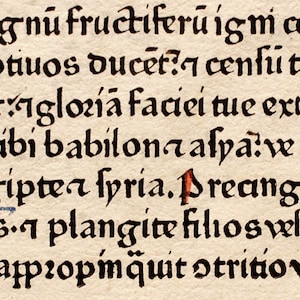 gnū fructiferū igni c
ptiuos ducēt?⁊ censū t
⁊ gloriā faciei tue ext
ibi babilon ⁊ asya: ve
ipte ⁊ syria. Precing
s: ⁊ plangite filios ve
appropinq̄uit ɔtritio v